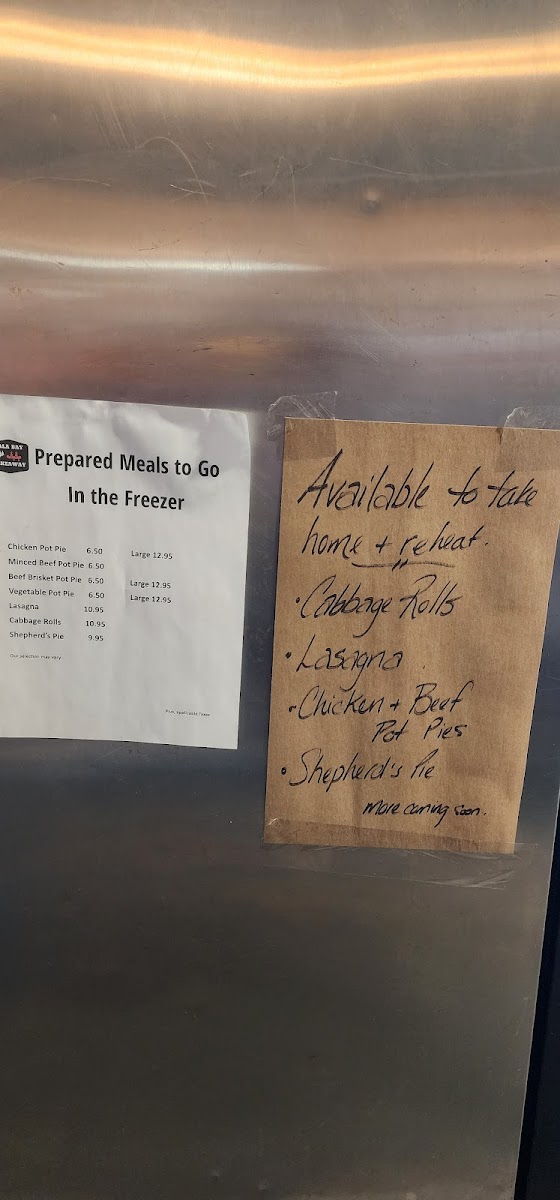 Prepared Meals to Go
In the Freezer
Chicken Pot Pie 6.50 Large 12.95
Minced Beef Pot Pie 6.50
Beef Brisket Pot Pie 6.50 Large 12.95
Vegetable Pot Pie 6.50 Large 12.95
Lasagna 10.95
Cabbage Rolls 10.95
Shepherd's Pie 9.95
Our selection may vary
Plus applicable Taxes
Available to take
home + reheat.
• Cabbage Rolls
• Lasagna
• Chicken + Beef
Pot Pies
• Shepherd's Pie
more coming soon.